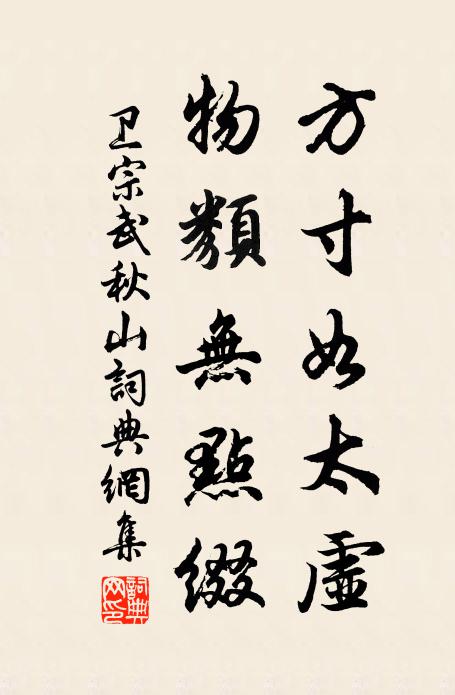 方寸如太虛
物類無點綴
卫宗武秋山詞典網集
詞典
网印